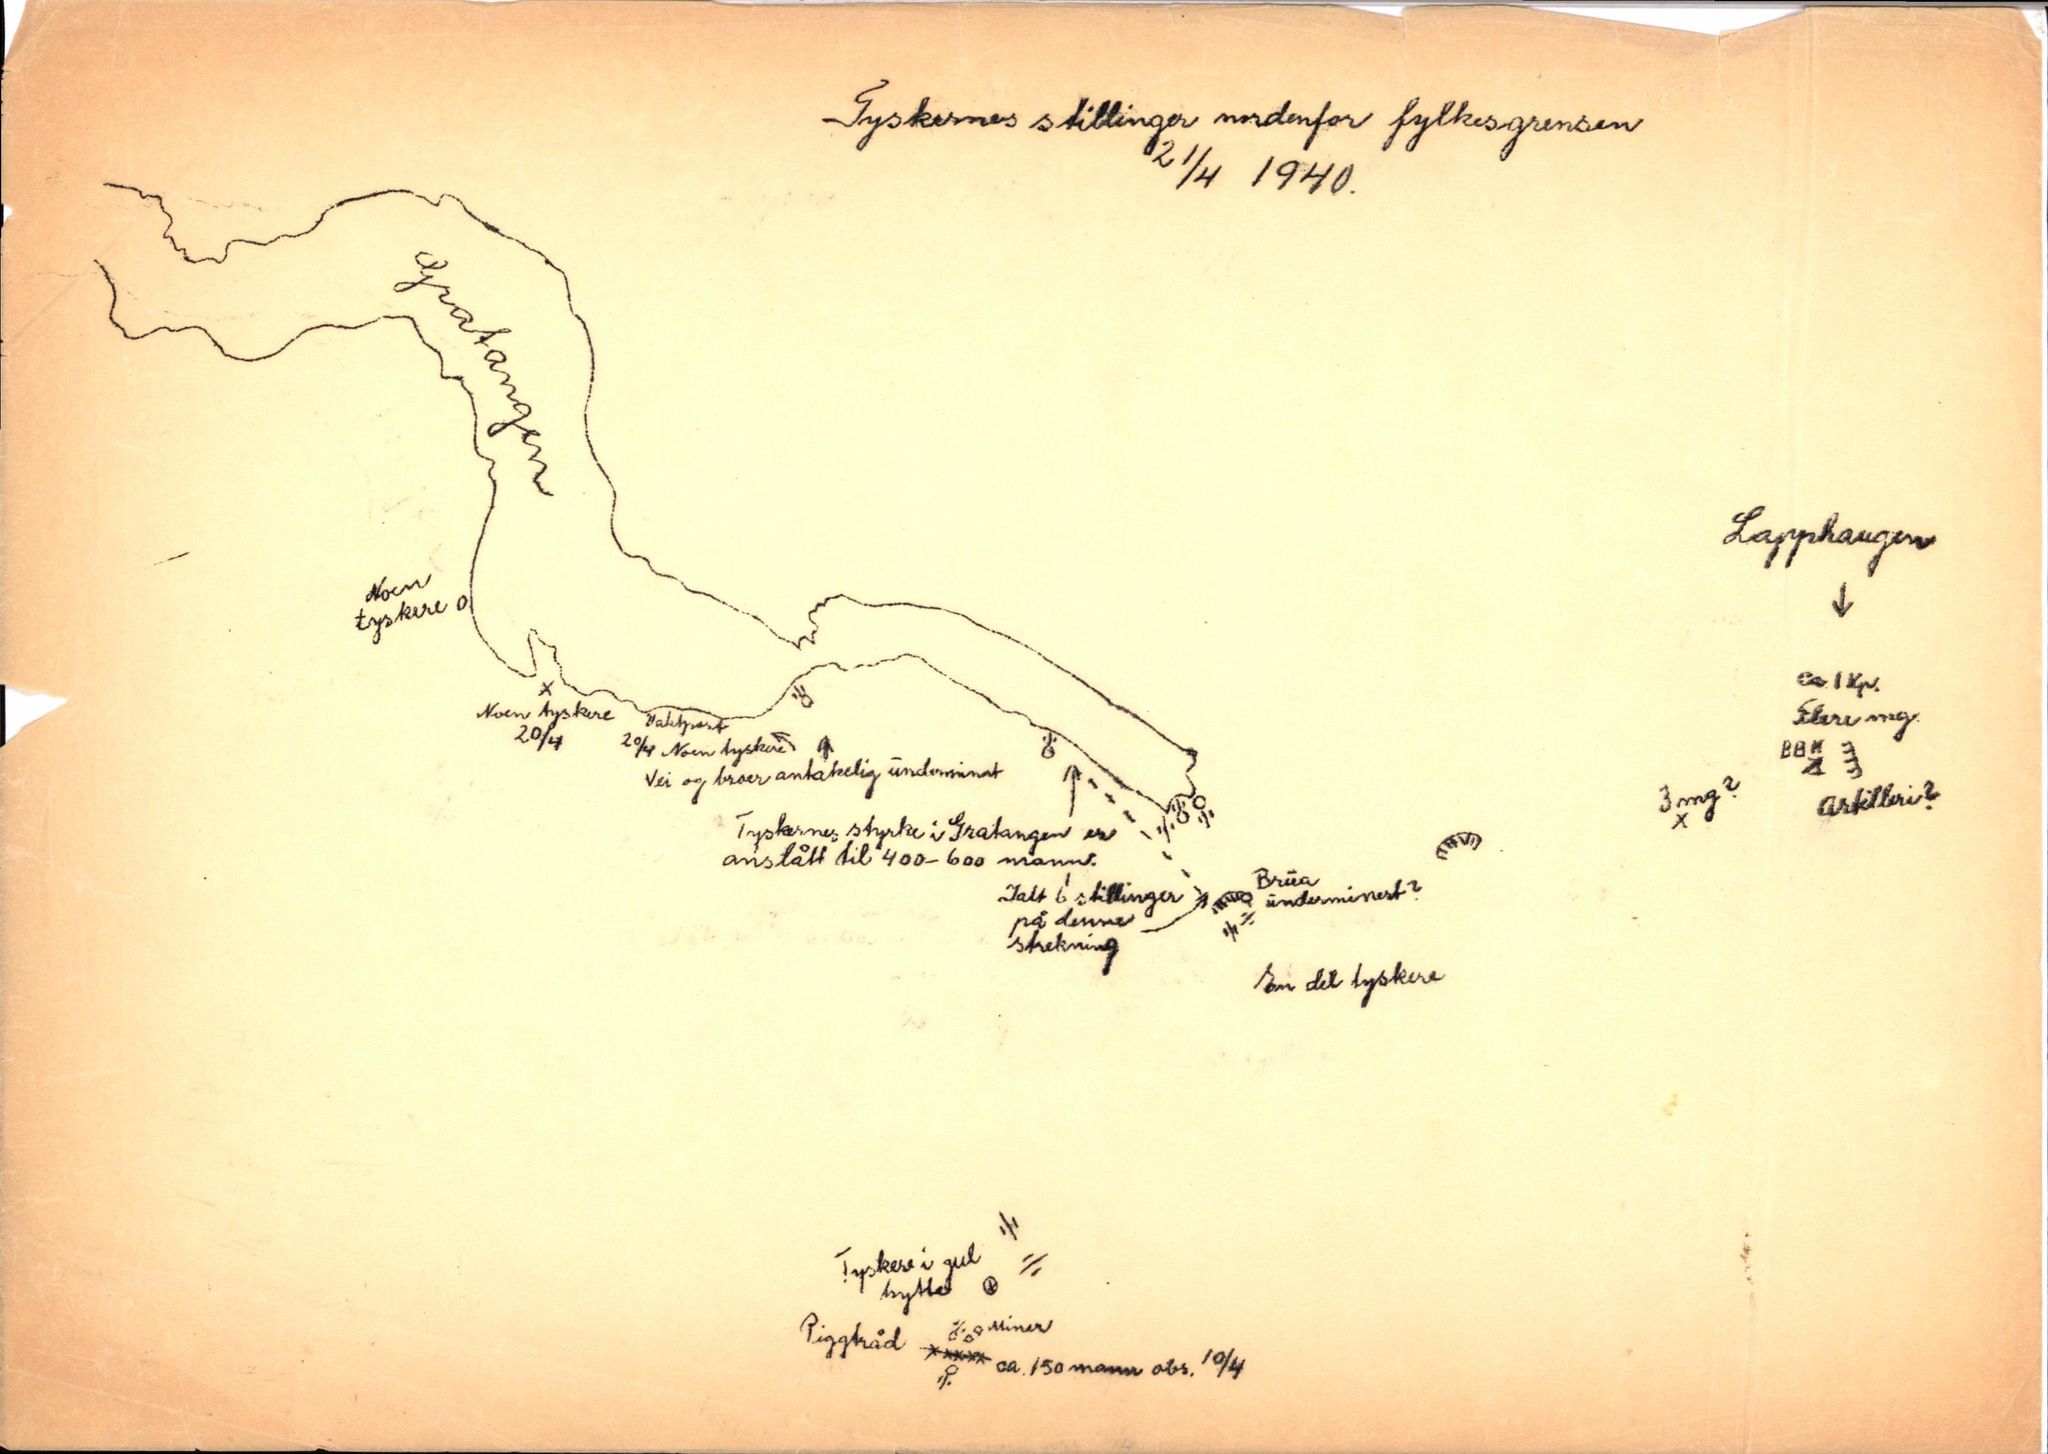 Tyskernes stillinger nordenfor fylkesgrensen
21/4 1940.
Gratangen
Lapphaugen
Noen
tyskere
Noen tyskere
20/4
Vaktpost
20/4 Noen tyskere
Vei og broer antakelig ünderminert
Tyskernes styrke i Gratangen er
anslått til 400-600 mann.
Ialt 6 stillinger
på denne
strekning
Brüa
ünderminert?
En del tyskere
3 mg?
X
ca 1 Kp.
Flere mg.
BBK
Artilleri?
Tyskere i gul
hytte
Miner
Piggtråd
ca. 150 mann obs. 10/4